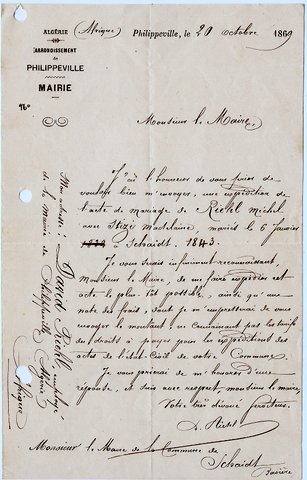 ALGÉRIE (Afrique)
ARRONDISSEMENT
de
PHILIPPEVILLE
MAIRIE
N°
Philippeville, le 20 Octobre 1869
Monsieur le Maire,
J'ai l'honneur de vous prier de
vouloir bien m'envoyer, une expédition de
l'acte de mariage de Riehl Michel
avec Madelaine, mariés le 6 Janvier
Schaidt. 1843.
Je vous serais infiniment reconnaissant,
Monsieur le Maire, de me faire expédier cet
acte le plus tôt possible, ainsi qu'une
note des frais, dont je m'empresserai de vous
envoyer le montant, ne connaissant pas les tarifs
des droits à payer pour les expéditions des
actes de l'état Civil de votre Commune.
Je vous prierai de m'honorer d'une
réponse, et suis avec respect, monsieur le maire,
Votre très dévoué serviteur.
D. Riehl
Monsieur le Maire de la Commune de
Schaidt
Bavière
Mon adresse: David Riehl employé
de la Mairie de Philippeville Algérie
Afrique